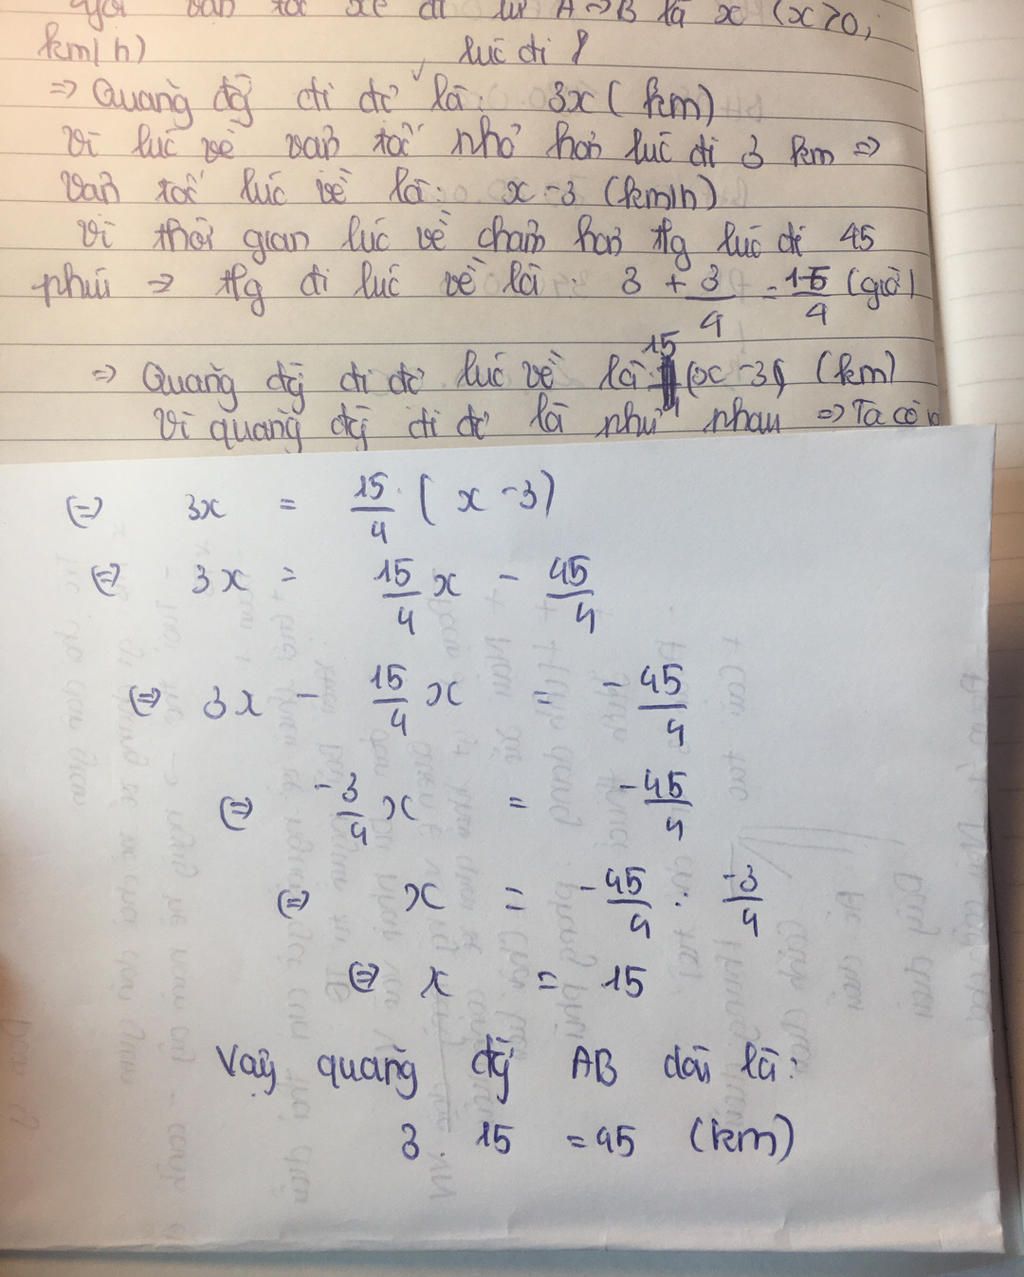 Gọi vận tốc xe đi từ A → B là x (x > 0,
km/h) lúc đi
=> Quãng đg đi đc là: 3x (km)
Vì lúc về vận tốc nhỏ hơn lúc đi 3 km =>
vận tốc lúc về là: x - 3 (km/h)
Vì thời gian lúc về chậm hơn tg lúc đi 45
phút => tg đi lúc về là: 3 + 3/4 = 15/4 (giờ)
=> Quãng đg đi đc lúc về là: 15/4 (x - 3) (km)
Vì quãng đg đi đc là như nhau => Ta có
(=) 3x = 15/4 (x - 3)
(=) 3x = 15/4 x - 45/4
(=) 3x - 15/4 x = -45/4
(=) -3/4 x = -45/4
(=) x = -45/4 : -3/4
(=) x = 15
Vậy quãng đg AB dài là:
3 . 15 = 45 (km)